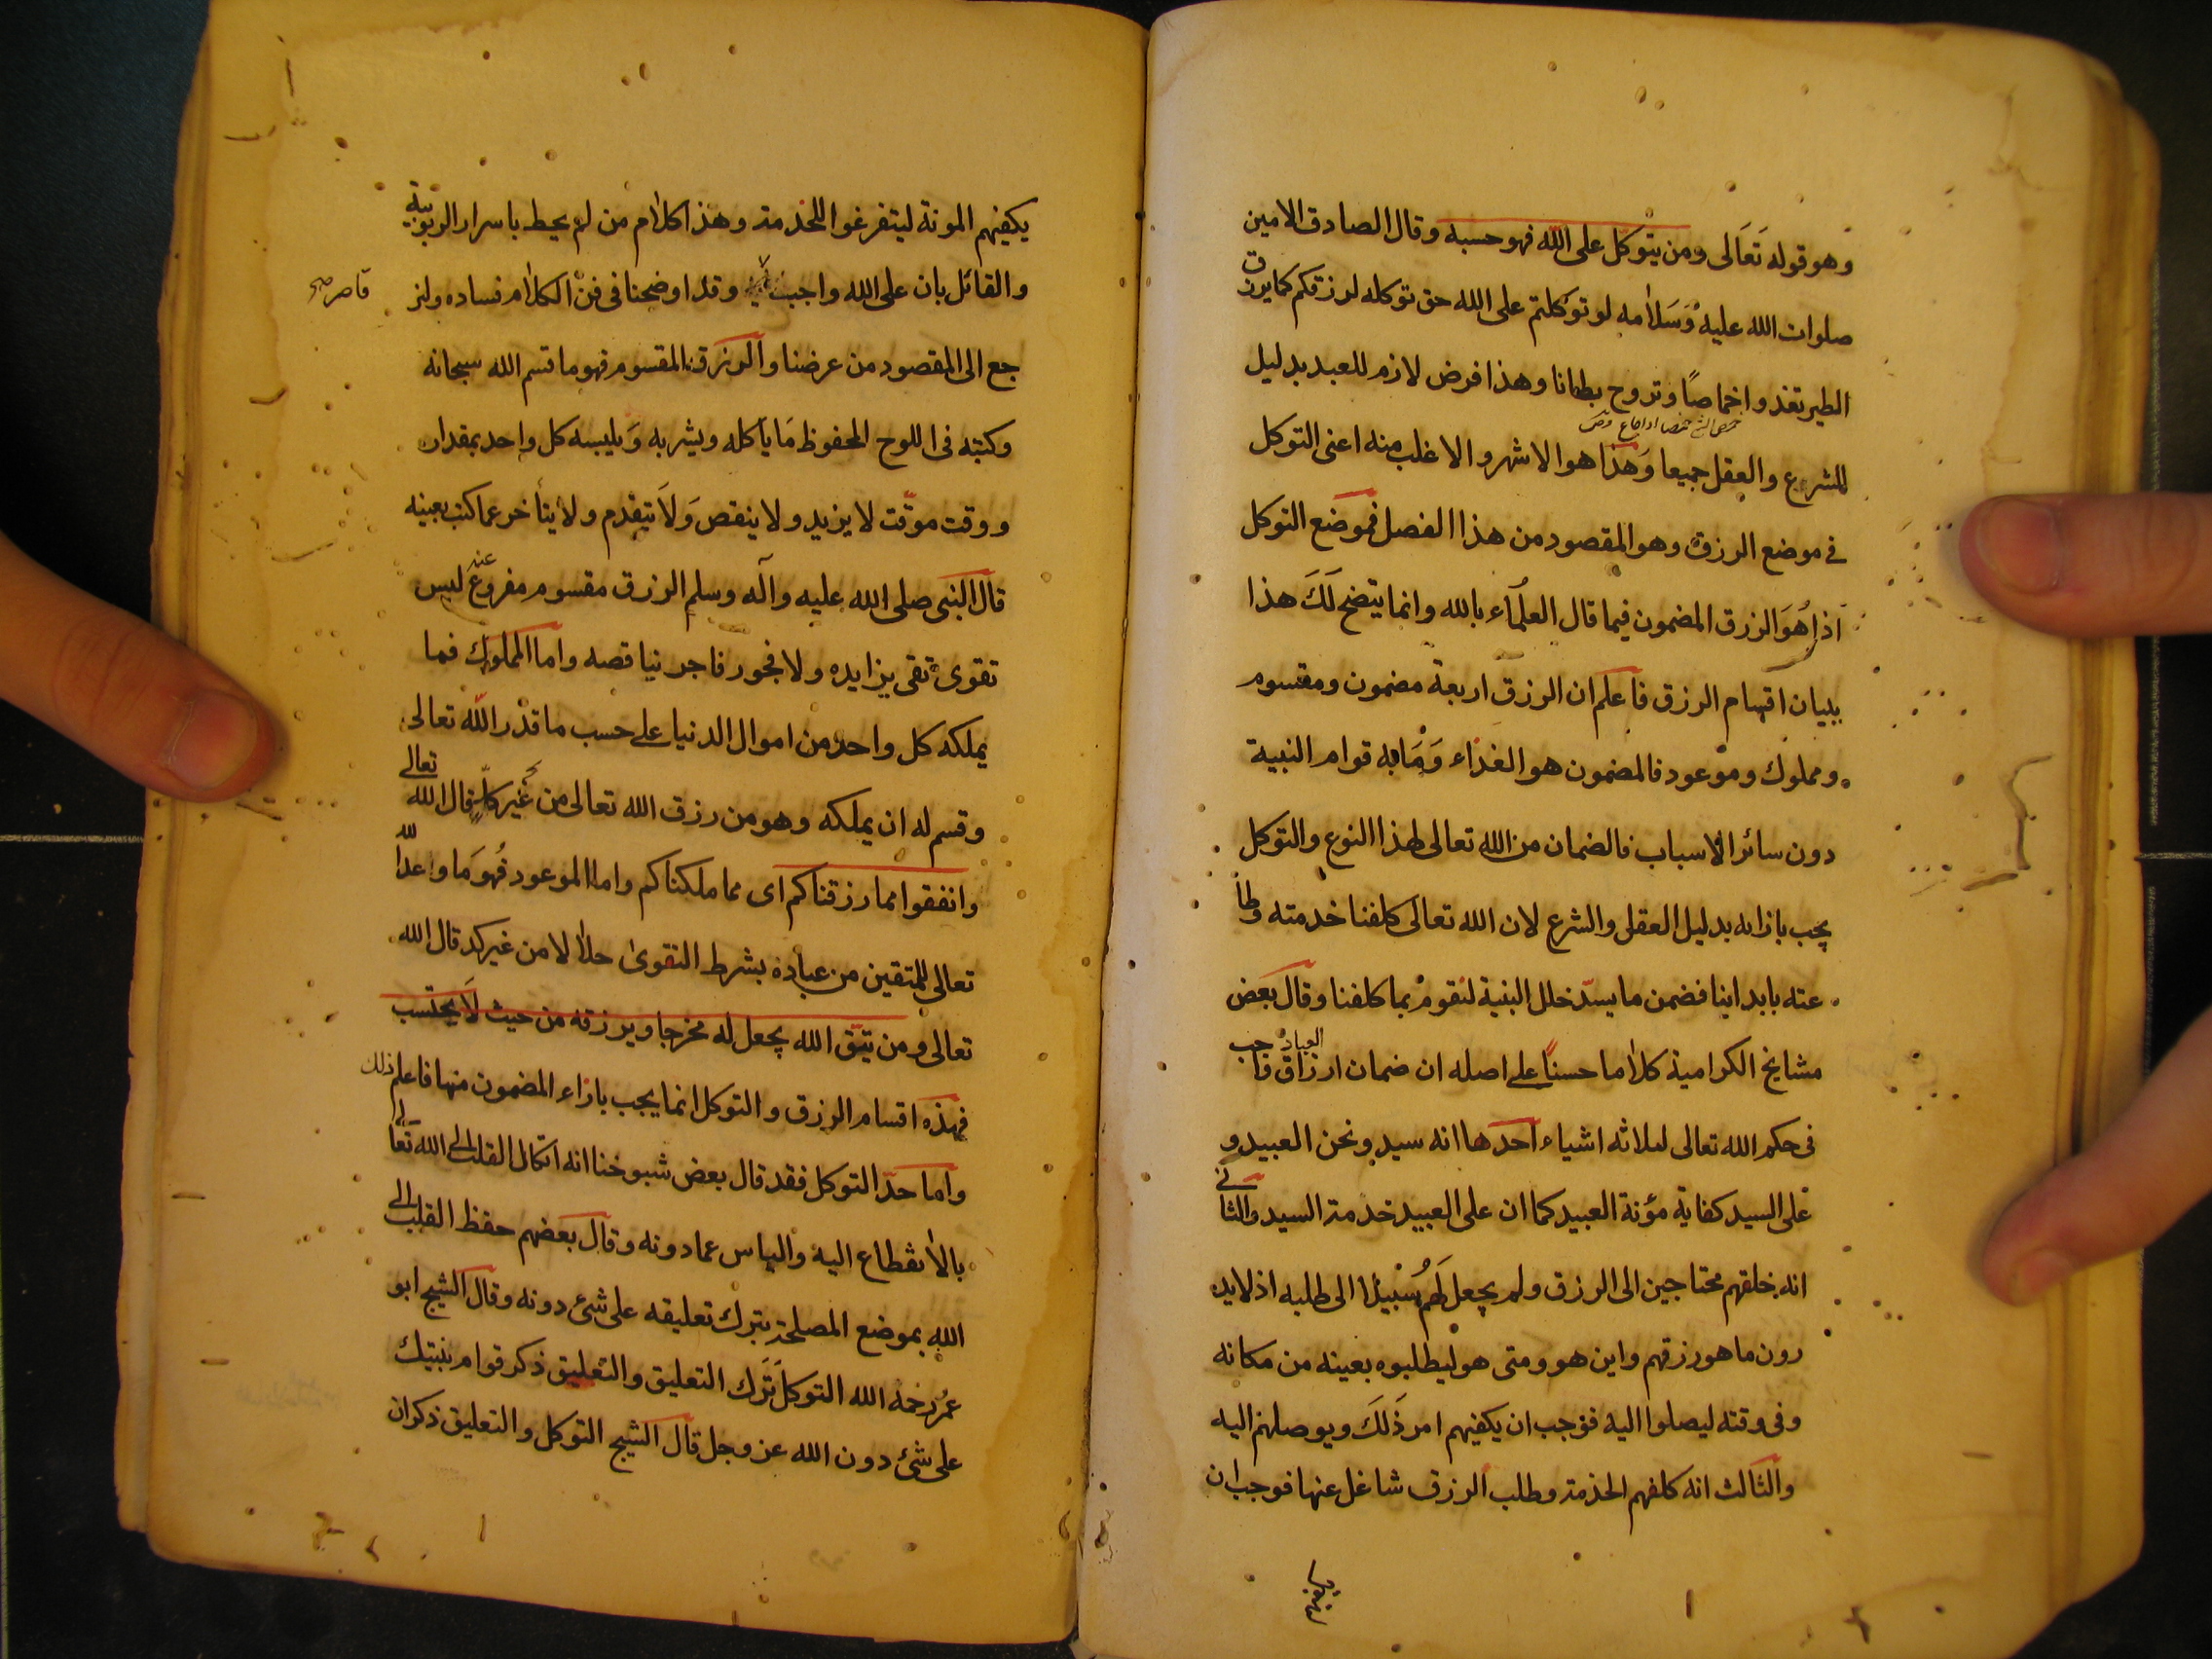 وهو قوله تَعَالى ومن يتوكل على الله فهو حسبه وقال الصادق الامين
صلوات الله عليه وَسَلامه لو توكلتم على الله حق توكله لرزقكم كما يرزق
الطير تغدوا خماصًا وتروح بطانا وهذا فرض لازم للعبد بدليل
للشرع والعقل جميعا وَهذا هو الاشهر والاغلب منه اعنى التوكل
فى موضع الرزق وهو المقصود من هذا الفصل فموضع التوكل
اذا هُوَ الرزق المضمون فيما قال العلمآء بالله وانما يتضح لَكَ هذا
ببيان اقسام الرزق فاعلم ان الرزق اربعة مضمون ومقسوم
ومملوك وموعود فالمضمون هو الغذاء وَمَا به قوام النبية
دون سائر الاسباب فالضمان من الله تعالى لهذا النوع والتوكل
يجب بازائه بدليل العقلى والشرع لان الله تعالى كلفنا خدمته وطا
عته بابداننا فضمن ما يسدّ خلل البنية لنقوم بما كلفنا وقال بعض
مشايخ الكرامية كلاما حسنًا على اصله ان ضمان ارزاق العباد واجب
فى حكم الله تعالى لثلاثه اشياء احدها انه سيد ونحن العبيد و
على السيد كفاية مؤنة العبيد كما ان على العبيد خدمة السيد والثانى
انه خلقهم محتاجين الى الرزق ولم يجعل لَهُم سَبيلا الى طلبه اذ لا يد
رون ما هو رزقهم واين هو ومتى هو ليطلبوه بعينه من مكانه
وفى وقته ليصلوا اليه فوجب ان يكفيهم امر ذَلكَ ويوصلهم اليه
والثالث انه كلفهم الخدمة وطلب الرزق شاغل عنها فوجب ان
يكفيهم
يكفيهم المونة ليتفرغوا للخدمة وهذا كلام من لم يحيط باسرار الربوبية
والقائل بان على الله واجب وقد اوضحنا فى فن الكلام فساده ولنر
قاصر صح
جع الى المقصود من عرضنا والرزق المقسوم فهو ما قسم الله سبحانه
وكتبه فى اللوح المحفوظ مَا ياكله ويشربه وَيلبسه كل واحد بمقدار
ووقت موقّت لا يزيد ولا ينقص وَلاَ يتقدم ولا يتأخر عما كتب بعينه
قال النبى صلى الله عليه وآله وسلم الرزق مقسوم مفروغ عنه ليس
تقوى تقى بزايده ولا فجور فاجر نياقصه واما المملوك فما
يملكه كل واحد من اموال الدنيا على حسب ما قدر الله تعالى
وقسم له ان يملكه وهو من رزق الله تعالى من غير كدٍّ قال الله تعالى
وانفقوا مما رزقناكم اى مما ملكناكم واما الموعود فُهوَ مَا واعد الله
تعالى للمتقين من عباده بشرط التقوى حلالا من غير كد قال الله
تعالى ومن يتّق الله يجعل له مخرجا ويرزقه من حيث لَا يحتسب
فهذه اقسام الرزق والتوكل انما يجب بازاء المضمون منها فاعلم ذلك
واما حدّ التوكل فقد قال بعض شيوخنا انه اتكال القلب الى الله تعالى
بالانقطاع اليه والياس عما دونه وقال بعضهم حفظ القلب الى
الله بموضع المصلحة بترك تعليقه على شئ دونه وقال الشيخ ابو
عمر رحمه الله التوكل تَرَك التعليق والتعليق ذكر قوام بنيتك
على شئ دون الله عز وجل قال الشيخ التوكل والتعليق ذكران